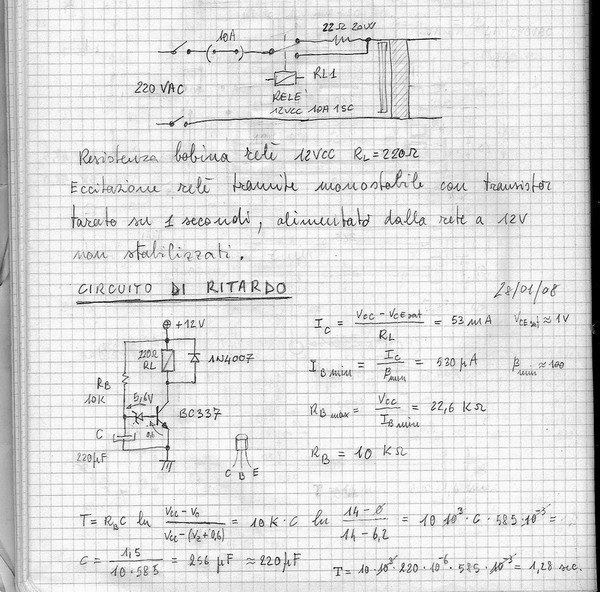 10A
22Ω 20W
RL1
220 VAC
RELE'
12VCC 10A 1SC
Resistenza bobina relè 12VCC RL = 220Ω
Eccitazione relè tramite monostabile con transistor
tarato su 1 secondi, alimentato dalla rete a 12V
non stabilizzati.
CIRCUITO DI RITARDO
28/01/08
+12V
220Ω
RL
1N4007
RB
10K
5,6V
BC337
0,6
C
220µF
C B E
IC = (VCC - VCEsat) / RL = 53 mA VCEsat ≈ 1V
IBmin = IC / βmin = 530 µA βmin ≈ 100
RBmax = VCC / IBmin = 22,6 KΩ
RB = 10 KΩ
T = RBC ln (VCC - V0) / (VCC - (VZ + 0,6)) = 10K · C ln (14 - 0) / (14 - 6,2) = 10 10³ · C · 585 · 10⁻³ =
C = 1,5 / (10 · 585) = 256 µF ≈ 220µF
T = 10 · 10³ · 220 · 10⁻⁶ · 585 · 10⁻³ = 1,28 sec.